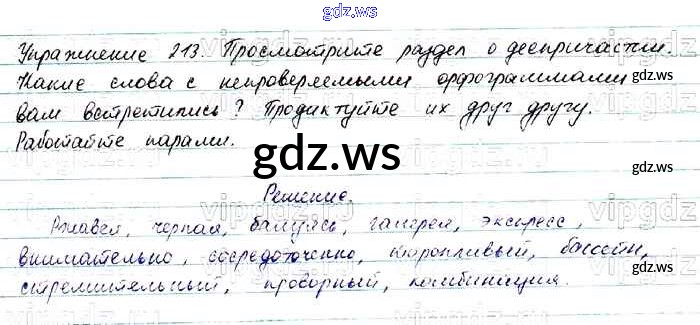 gdz.ws
Упражнение 213. Просмотрите раздел о деепричастии.
Какие слова с непроверяемыми орфограммами
вам встретились? Продиктуйте их друг другу.
Работайте парами.
gdz.ws
gdz.ws
gdz.ws
Решение.
черная, балуясь, галерея, экспресс,
внимательно, сосредоточенно, торопливый, бассейн,
стремительный, проворный, комбинация.
gdz.ws
gdz.ws
gdz.ws